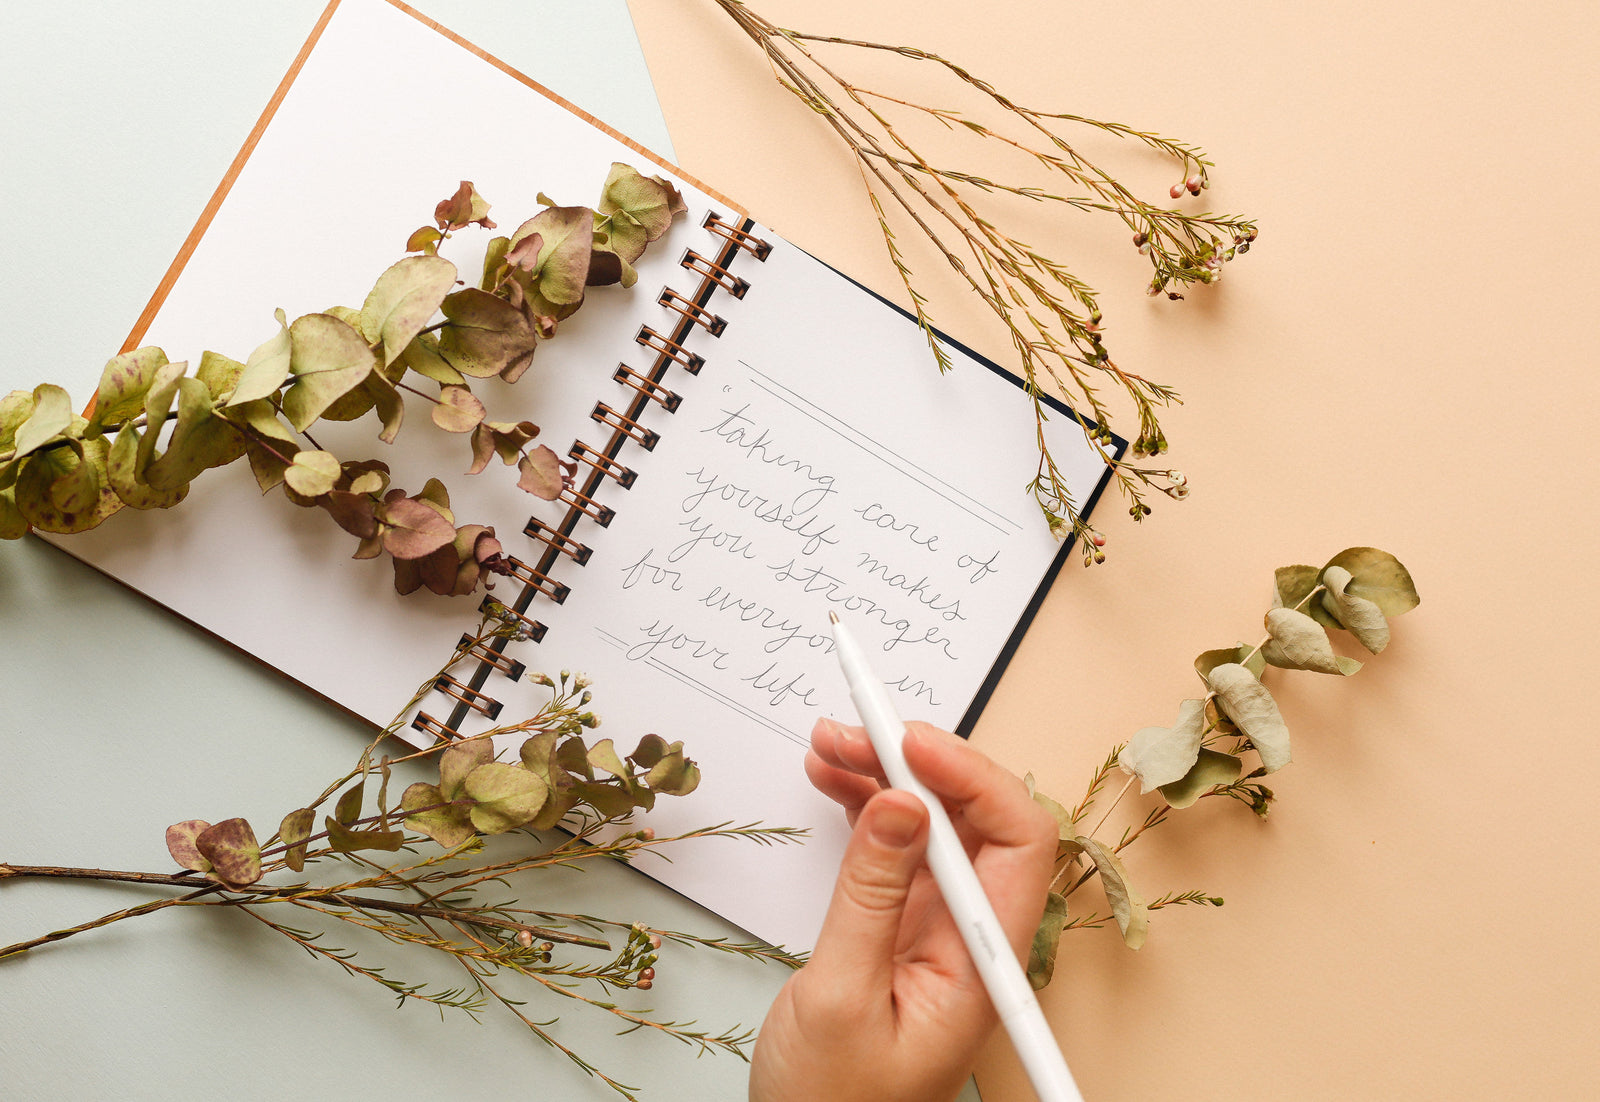 "taking care of
yourself makes
you stronger
for everyon in
your life.